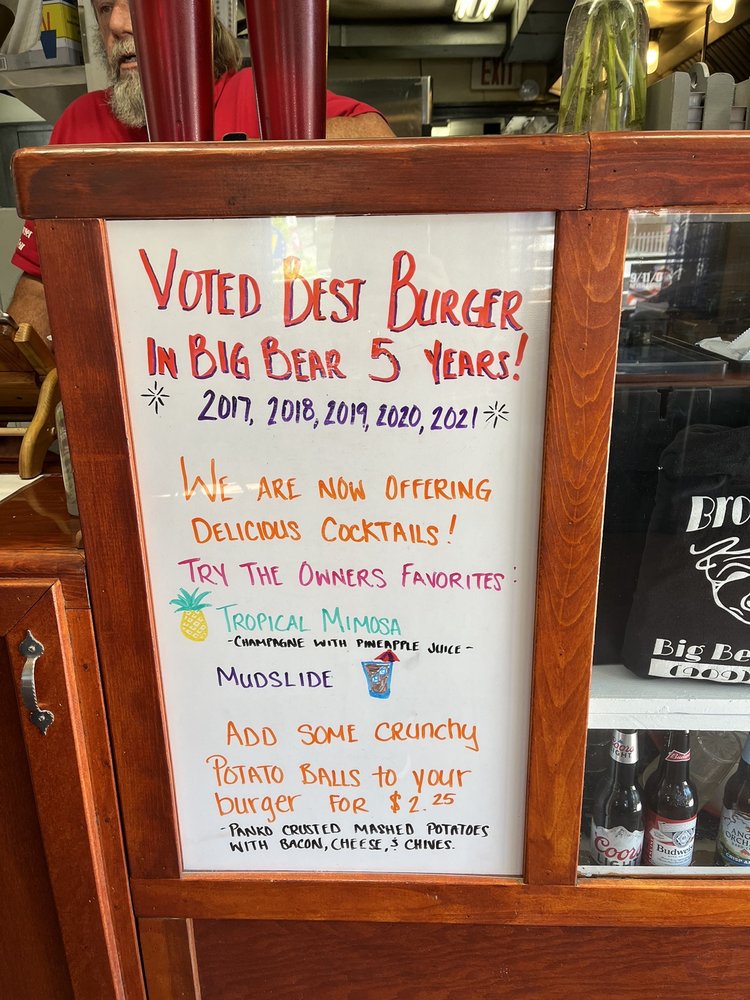 EXIT
VOTED BEST BURGER
IN BIG BEAR 5 YEARS!
2017, 2018, 2019, 2020, 2021
WE ARE NOW OFFERING
DELICIOUS COCKTAILS!
TRY THE OWNERS FAVORITES:
TROPICAL MIMOSA
-CHAMPAGNE WITH PINEAPPLE JUICE-
MUDSLIDE
ADD SOME CRUNCHY
POTATO BALLS to your
burger FOR $2.25
-PANKO CRUSTED MASHED POTATOES
WITH BACON, CHEESE, & CHIVES.
Bro
Big Be
(909)
Coors
LIGHT
Budwei